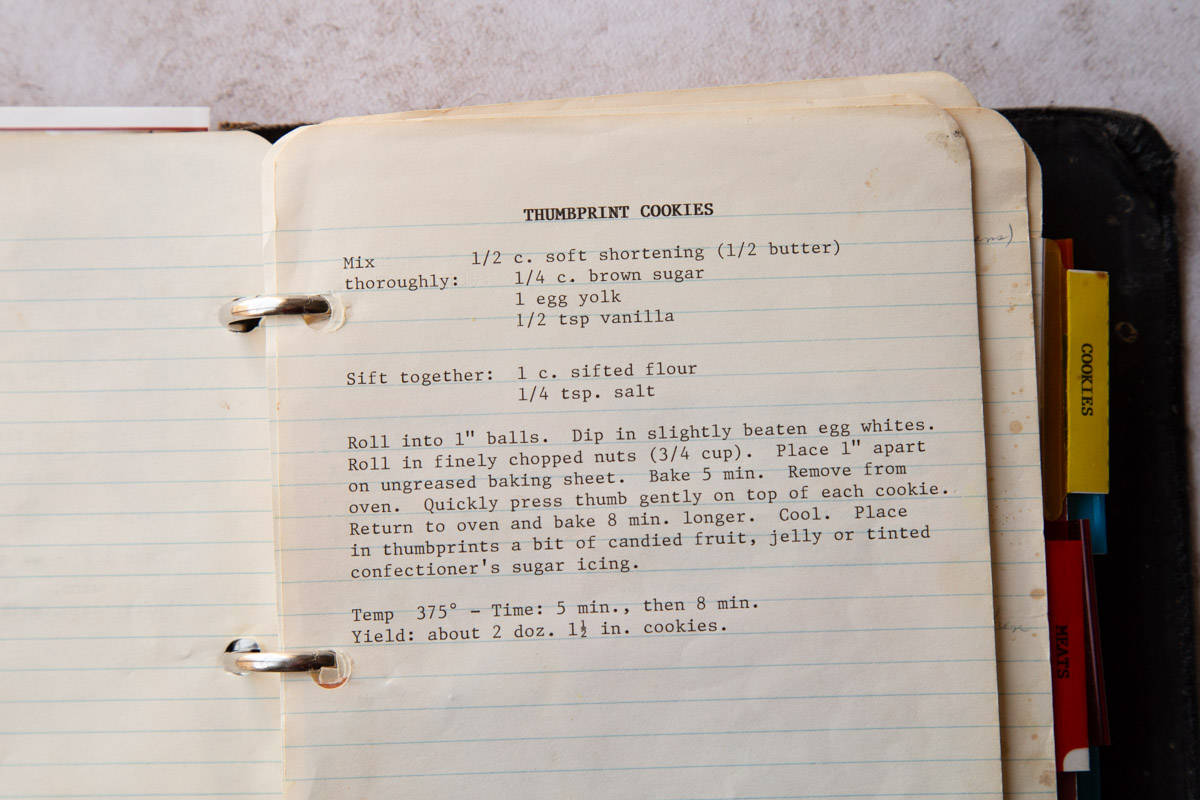 THUMBPRINT COOKIES
Mix 1/2 c. soft shortening (1/2 butter)
thoroughly: 1/4 c. brown sugar
1 egg yolk
1/2 tsp vanilla
Sift together: 1 c. sifted flour
1/4 tsp. salt
Roll into 1" balls. Dip in slightly beaten egg whites.
Roll in finely chopped nuts (3/4 cup). Place 1" apart
on ungreased baking sheet. Bake 5 min. Remove from
oven. Quickly press thumb gently on top of each cookie.
Return to oven and bake 8 min. longer. Cool. Place
in thumbprints a bit of candied fruit, jelly or tinted
confectioner's sugar icing.
Temp 375° - Time: 5 min., then 8 min.
Yield: about 2 doz. 1½ in. cookies.
COOKIES
MEATS